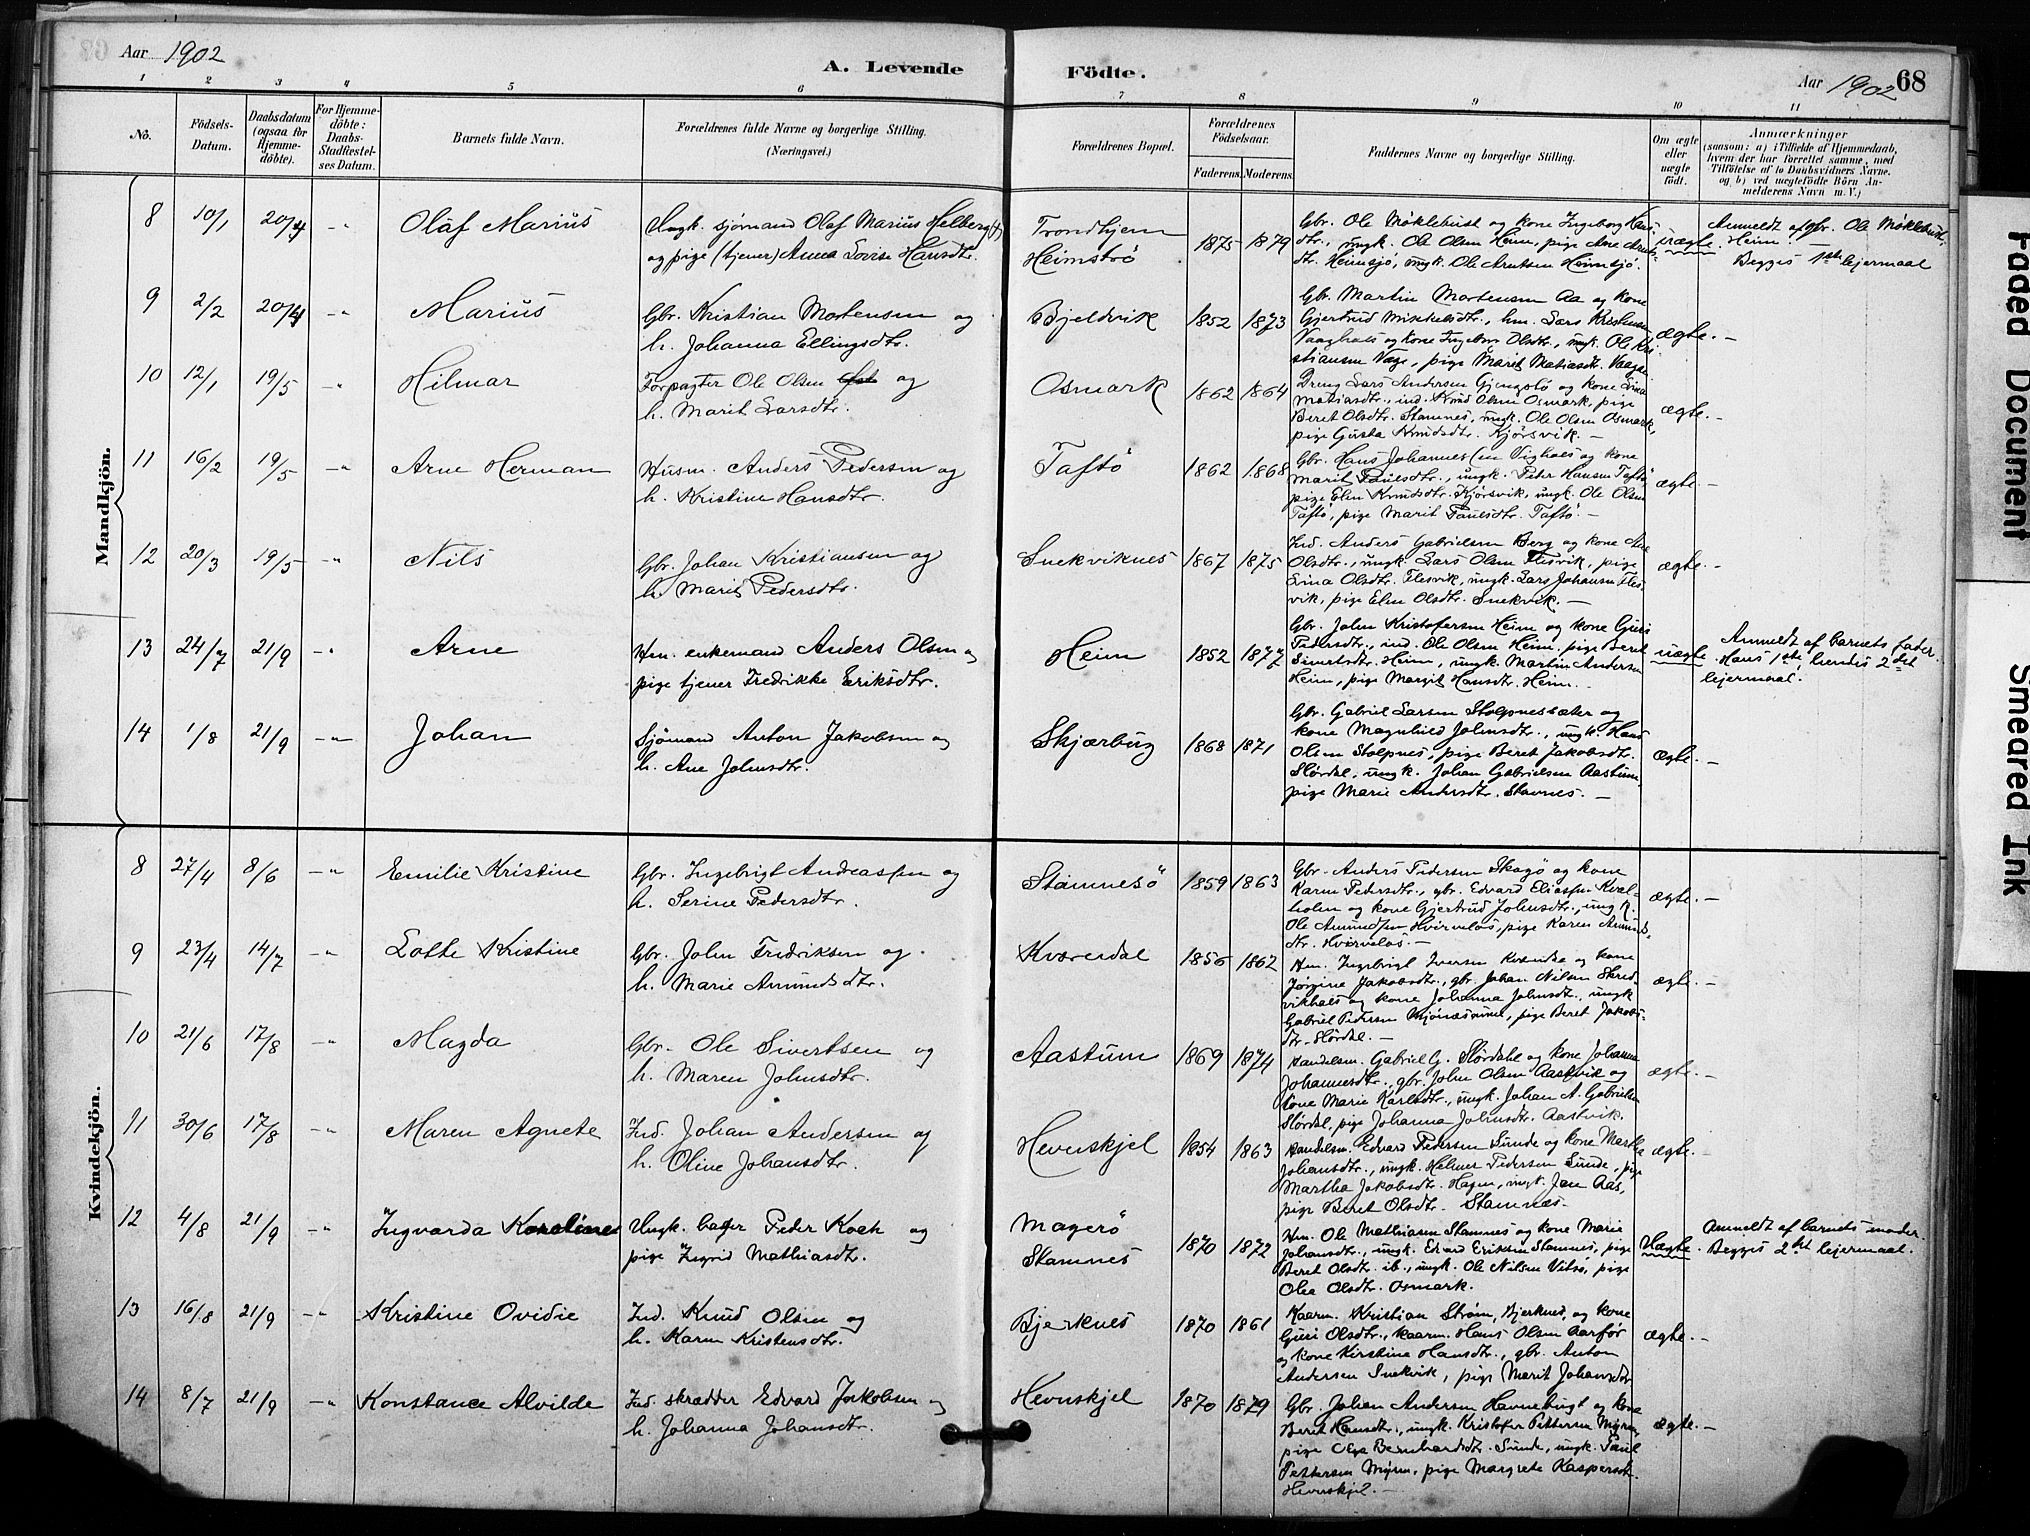 Aar 1902
A. Levende Födte.
Aar 1902 68
1 2 3 4 5 6 7 8 9 10 11
No.
Födsels-Datum.
Daabsdatum (ogsaa for Hjemme-döbte).
For Hjemme-döbte: Daabs-Stadfæstel-ses Datum.
Barnets fulde Navn.
Forældrenes fulde Navne og borgerlige Stilling.
(Næringsvei.)
Forældrenes Bopæl.
Forældrenes Födselsaar.
Faderens. Moderens.
Faddernes Navne og borgerlige Stilling.
Om ægte eller uægte födt.
Anmærkninger
(saasom: a) i Tilfælde af Hjemmedaab,
hvem der har forrettet samme, med
Tilföielse af to Daabsvidners Navne.
og b) ved uægtefödte Börn An-
melderens Navn m. V.)
Mandkjön.
8 10/1 20/4 -"- Olaf Marius
Ungk. sjømand Olaf Marius Helberg (4)
og pige (tjener) Anna Lovise Hansdtr.
Trondhjem
Heimsjø
1875 1879
Gbr. Ole Møklebust og kone Ingeborg Hans
dtr., ungk. Ole Olsen Heim, pige Ane Arnts-
dtr. Heimsjø, ungk. Ole Arntsen Heimsjø.
uægte
Anmeldt af gbr. Ole Møklebust,
Heim. —
Begges 1ste leiermaal
9 2/2 20/4 -"- Marius
Gbr. Kristian Mortensen og
h. Johanna Ellingsdtr.
Bjeldvik
1852 1873
Gbr. Martin Mortensen Aa og kone
Gjertrud Mikkelsdtr., hm. Lars Kristensen
Vaaghals og kone Ingebor Olsdtr., ungk. Ole Kri-
stiansen Væge, pige Marit Matiasdt. Vaagen
ægte. —
10 12/1 19/5 -"- Hilmar
Forpagter Ole Olsen og
h. Marit Larsdtr.
Osmark
1862 1864
Dreng Lars Andersen Gjengstø og kone Lina
Matiasdtr., ind. Knud Olsen Osmark, pige
Beret Olsdtr. Stamnes, ungk. Ole Olsen Osmark,
pige Gusta Knudsdtr. Kjørsvik. —
ægte. —
11 16/2 19/5 -"- Arne Herman
Husm. Anders Pedersen og
h. Kristine Hansdtr.
Taftø
1862 1868
Gbr. Hans Johannessen Vighals og kone
Marit Paulsdtr., ungk. Peter Hansen Taftø
pige Elen Knudsdtr. Kjørsvik, ungk. Ole Olsen
Taftø, pige Marit Paulsdtr. Taftø. —
ægte. —
12 20/3 19/5 -"- Nils
Gbr. Johan Kristiansen og
h. Marit Pedersdtr.
Snekviknes
1867 1875
Ind. Anders Gabrielsen Berg og kone Ane
Olsdtr., ungk. Lars Olsen Flesvik, pige
Lina Olsdtr. Flesvik, ungk. Lars Johansen Fles-
vik, pige Elen Olsdtr. Snekvik. —
ægte. —
13 24/7 21/9 -"- Arne
Hm. enkemand Anders Olsen og
pige tjener Fredrikke Eriksdtr.
Heim
1852 1877
Gbr. John Kristofersen Heim og kone Guri
Pedersdtr., ind. Ole Olsen Heim, pige Beret
Sivertsdtr. Heim, ungk. Martin Andersen
Heim, pige Margit Hansdtr. Heim. —
uægte
Anmeldt af barnets fader.
Hans 1ste, hendes 2det
leiermaal.
14 1/8 21/9 -"- Johan
Sjømand Anton Jakobsen og
h. Ane Johnsdtr.
Skjærbug
1868 1871
Gbr. Gabriel Larsen Stolpnessæter og
kone Magnhild Johnsdtr., ungk. Hans
Olsen Stolpnes, pige Beret Jakobsdtr.
Slørdal, ungk. Johan Gabrielsen Aastum
pige Marie Andersdtr. Stavnes. —
ægte. —
Kvindekjön.
8 27/4 8/6 -"- Emilie Kristine
Gbr. Ingebrigt Andreassen og
h. Serine Pedersdtr.
Stamnesø
1859 1863
Gbr. Anders Pedersen Skagø og kone
Karen Pedersdtr., gbr. Edvard Eliassen Kval-
holm og kone Gjertrud Johnsdtr., ungk.
Ole Amundsen Hvirvelos, pige Karen Amunds-
dtr. Hvirvelos. —
ægte. —
9 23/4 14/7 -"- Lotte Kristine
Gbr. John Fredriksen og
h. Marie Amundsdtr.
Kværedal
1856 1862
Hm. Ingebrigt Iversen Kvernbe og kone
Jørgine Jakobsdtr., gbr. Johan Nilsen Skred-
vikhals og kone Johanna Johnsdtr., ungk
Gabriel Pedersen Mjønesaunet, pige Beret Jakobs-
dtr. Slørdal. —
ægte. —
10 21/6 17/8 -"- Magda
Gbr. Ole Sivertsen og
h. Maren Johnsdtr.
Aastum
1869 1874
Handelsm. Gabriel G. Slørdahl og kone Johanna
Johannesdtr., gbr. John Olsen Aastvik og
kone Marie Karlsdtr., ungk. Johan A. Gabrielsen
Slørdal, pige Johanna Johnsdtr. Aastvik.
ægte. —
11 30/6 17/8 -"- Maren Agnete
Ind. Johan Andersen og
h. Oline Johansdtr.
Hevnskjel
1854 1863
Handelsm. Edvard Pedersen Sunde og kone Martha
Johansdtr., ungk. Helmer Pedersen Sunde, pige
Martha Jakobsdtr. Hagen, ungk. Jan Aas,
pige Beret Olsdtr. Stamnæs.
ægte. —
12 4/8 21/9 -"- Ingvarda Karoline
Ungk. bager Peder Koch og
pige Ingrid Mathiasdtr.
Magerø
Stamnes
1870 1872
Hm. Ole Mathiasen Stamnes og kone Marie
Johansdtr., ungk. Edvard Eriksen Stamnes, pige
Beret Olsdtr. ib., ungk. Ole Nilsen Vitsø, pige
Olea Olsdtr. Osmark.
Uægte.
Anmeldt af barnets moder.
Begges 2det leiermaal.
13 16/8 21/9 -"- Kristine Ovidie
Ind. Knud Olsen og
h. Karen Kristensdtr.
Bjerknes
1870 1861
Kaarm. Kristian Strøm, Bjerknes, og kone
Guri Olsdtr., kaarm. Hans Olsen Aarfor
og kone Kirstine Hansdtr., gbr. Anton
Andersen Snekvik, pige Marit Johansdtr
ægte. —
14 8/7 21/9 -"- Konstance Alvilde
Ind. skrædder Edvard Jakobsen og
h. Johanna Johansdtr.
Hevnskjel
1870 1879
Gbr. Johan Andersen Havnebugt og kone
Beret Hansdtr., ungk. Kristofer Pettersen Myren,
pige Bernhardsdtr. Sunde, ungk. Paul
Pettersen Myren, pige Margrete Kaspersdt.
Hevnskjel. —
ægte. —
Faded Document
Smeared Ink